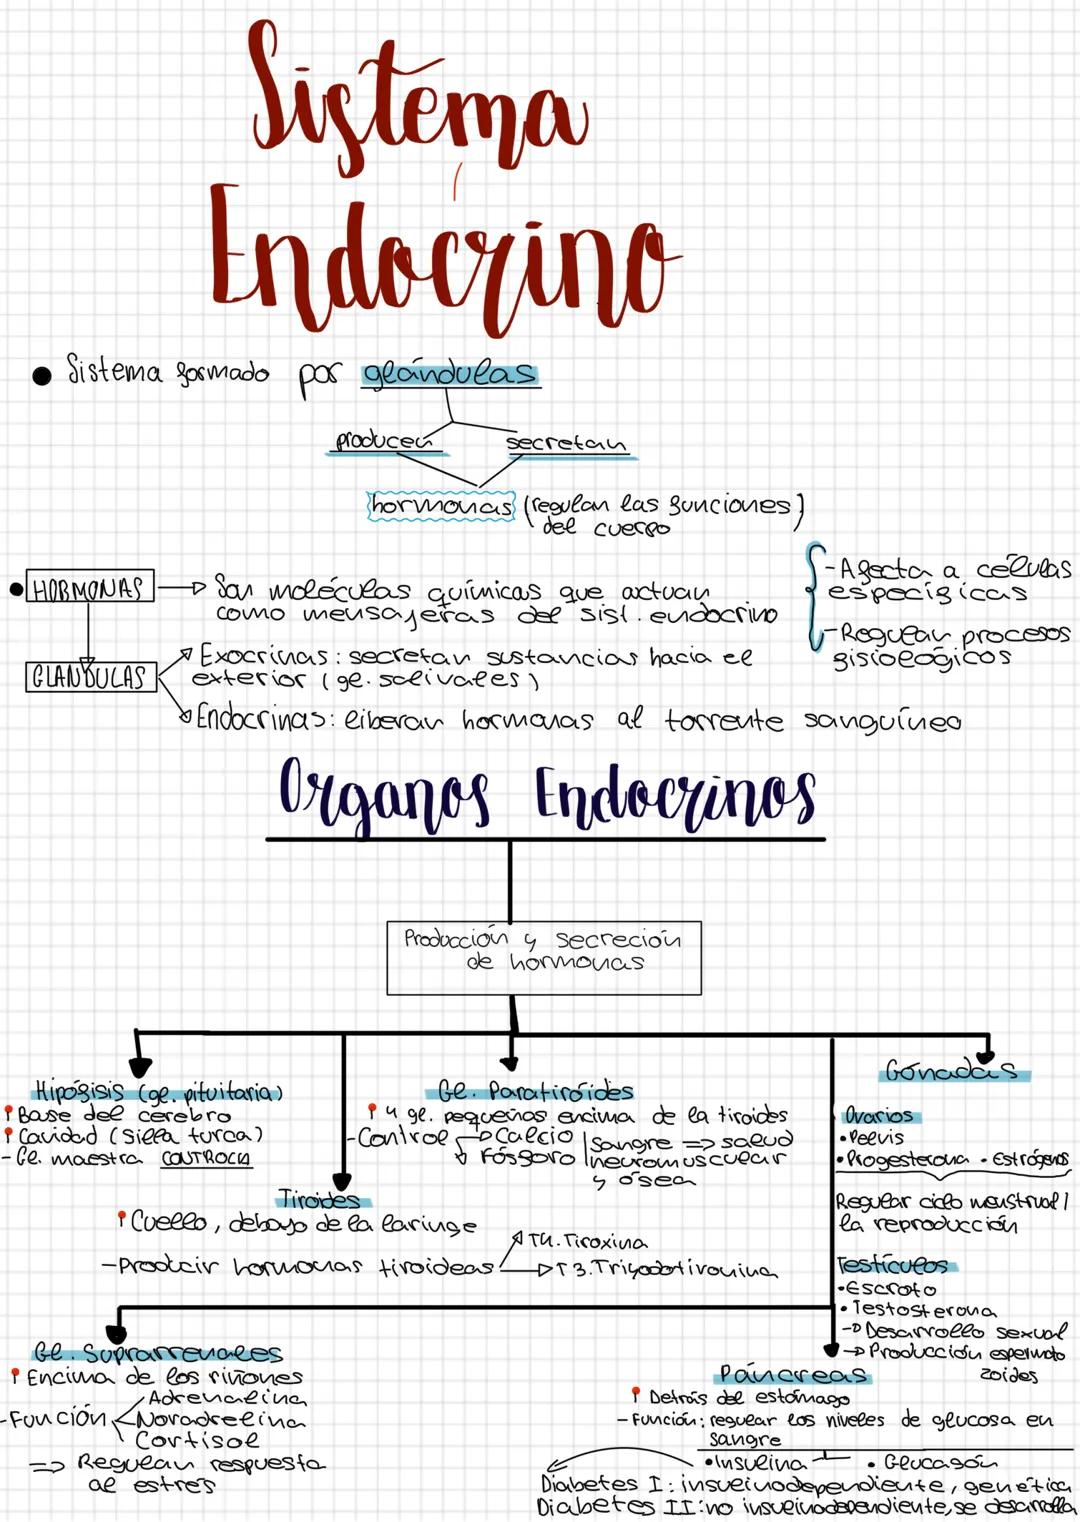 Sistema
Endocrino
Sistema formado por glándulas
producen secretan
hormonas (regulan las funciones)
del cuerpo
HORMONAS → Son moléculas químicas que actuan
como mensajeras del sist. endocrino
- Afecta a células
específicas
- Regulan procesos
fisiológicos
GLANDULAS
Exocrinas: secretan sustancias hacia el
exterior (gl. salivales)
Endocrinas: liberan hormonas al torrente sanguíneo
Organos Endocrinos
Producción y secreción
de hormonas
Hipófisis (gl. pituitaria)
Base del cerebro
Cavidad (silla turca)
- Gl. maestra CONTROLA
Gl. Paratiróides
4 gl. pequeñas encima de la tiroides
- Control → Calcio
Fósforo
Sangre => salud
neuromuscular
y ósea
Tiroides
Cuello, debajo de la laringe
- Producir hormonas tiroideas
T4. Tiroxina
T3. Triyodotironina
Gónadas
Ovarios
• Pelvis
• Progesterona • Estrógenos
Regular ciclo menstrual /
la reproducción
Testículos
• Escroto
• Testosterona
→ Desarrollo sexual
→ Producción espermato
zoides
Gl. Suprarrenales
Encima de los riñones
- Función
Adrenalina
Noradrelina
Cortisol
=> Regulan respuesta
al estrés
Páncreas
Detrás del estómago
- Función: regular los niveles de glucosa en
sangre
• Insulina • Glucagón
Diabetes I: insulinodependiente, genética
Diabetes II: no insulinodependiente, se desarrolla